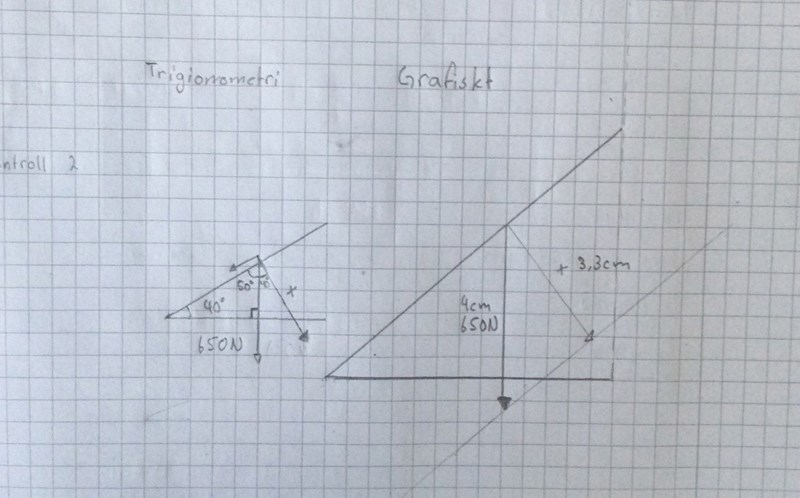 Trigionometri
Grafiskt
ntroll 2
50°
40°
x
650N
4cm
650N
x 3,3cm